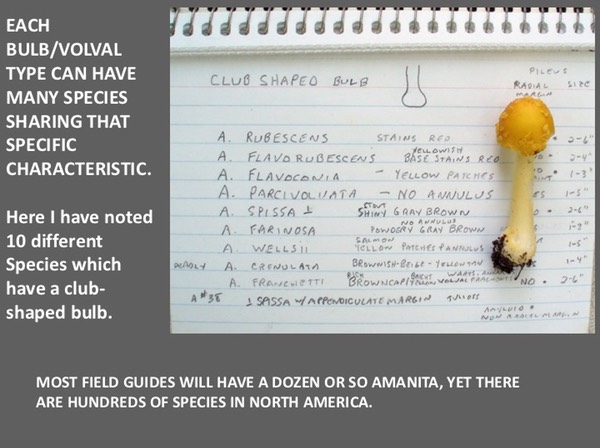 EACH
BULB/VOLVAL
TYPE CAN HAVE
MANY SPECIES
SHARING THAT
SPECIFIC
CHARACTERISTIC.
Here I have noted
10 different
Species which
have a club-
shaped bulb.
CLUB SHAPED BULB
PILEUS
RADIAL SIZE
MARGIN
A. RUBESCENS STAINS RED 2-6"
A. FLAVORUBESCENS YELLOWISH BASE STAINS RED 2-4"
A. FLAVOCONIA - YELLOW PATCHES 1-3"
A. PARCIVOLVATA - NO ANNULUS 1-5"
A. SPISSA STOUT SHINY GRAY BROWN 2-6"
A. FARINOSA NO ANNULUS POWDERY GRAY BROWN
A. WELLSII SALMON YELLOW PATCHES ANNULUS 1-5"
DEADLY A. CRENULATA BROWNISH-BEIGE-YELLOW TAN 1-4"
A. FRANCHETII RICH BROWN CAP NO 2-6"
A #38 SPISSA W/ APPENDICULATE MARGIN
AMYLOID
NON RADIAL MARGIN
MOST FIELD GUIDES WILL HAVE A DOZEN OR SO AMANITA, YET THERE
ARE HUNDREDS OF SPECIES IN NORTH AMERICA.